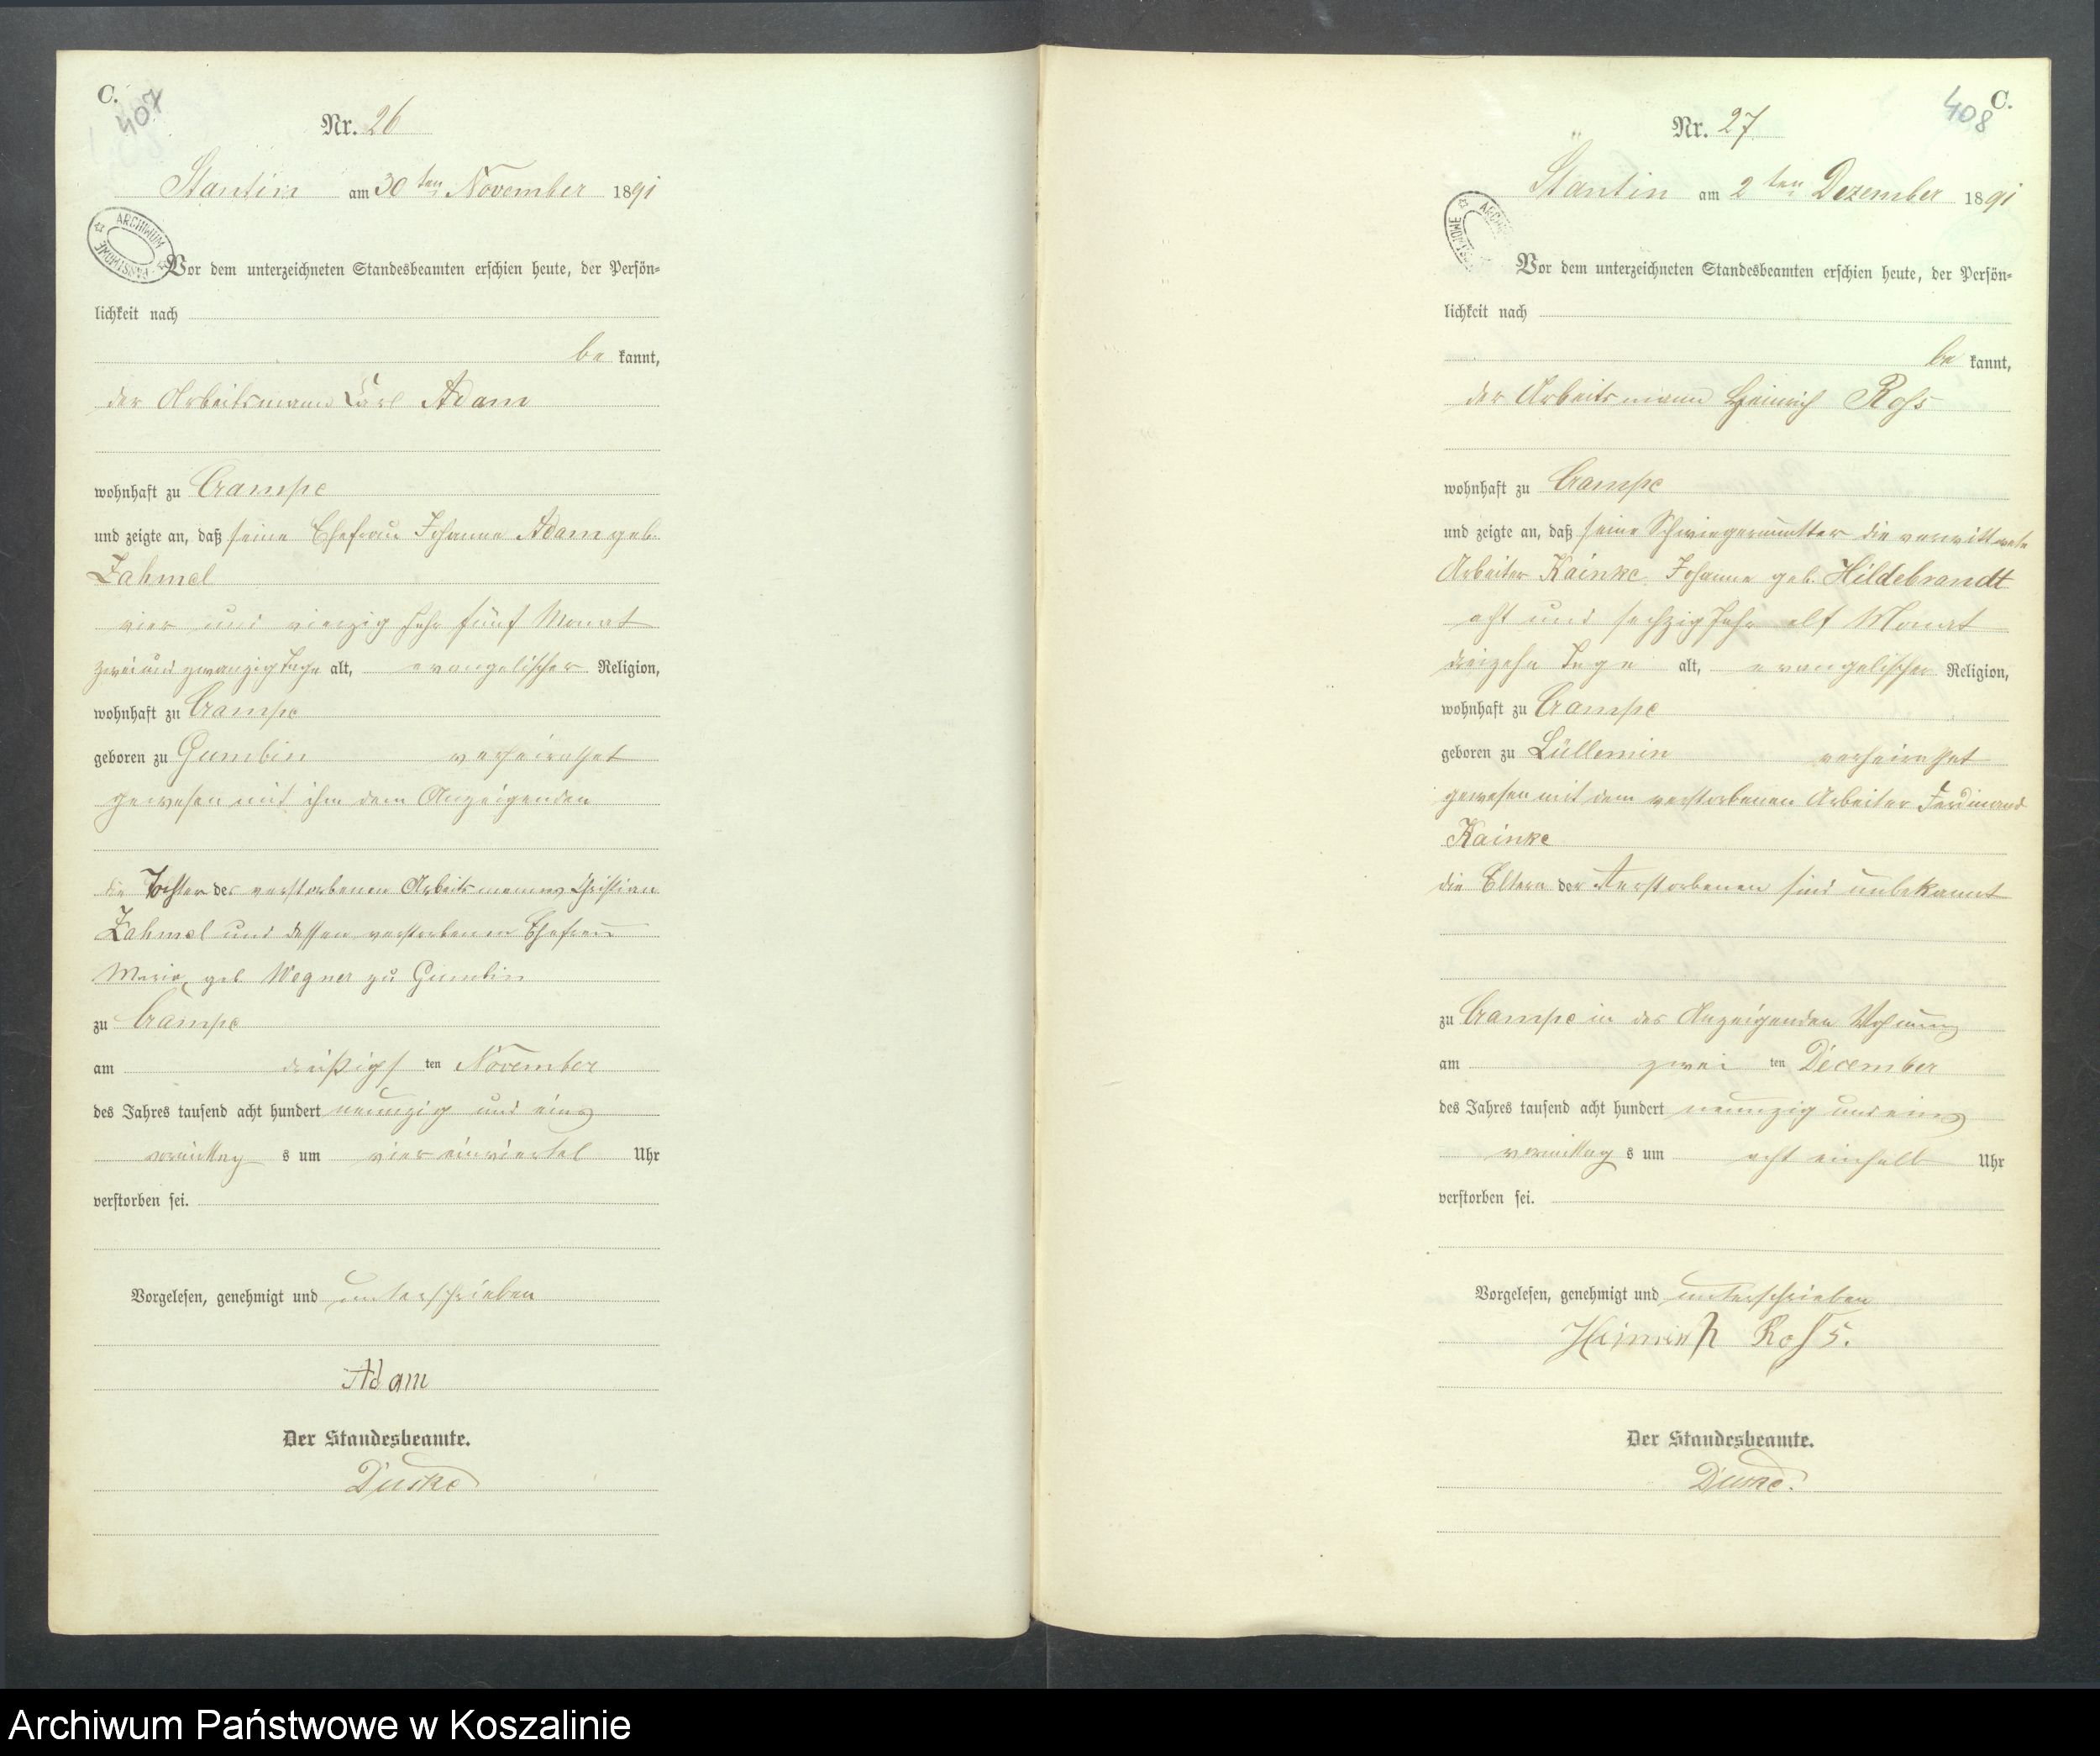 C.
407
Nr. 26
Stantin am 30ten November 1891
ARCHIWUM PAŃSTWOWE
Vor dem unterzeichneten Standesbeamten erschien heute, der Persön-
lichkeit nach
be kannt,
der Arbeitsmann Carl Adam
wohnhaft zu Crampe
und zeigte an, daß seine Ehefrau Johanne Adam geb.
Zahmel
vier und vierzig Jahr fünf Monat
zwei und zwanzig Tage alt, evangelischer Religion,
wohnhaft zu Crampe
geboren zu Gumbin verheirathet
gewesen mit ihm dem Anzeigenden
die Tochter des verstorbenen Arbeitsmannes Christian
Zahmel und dessen verstorbenen Ehefrau
Marie, geb. Wegner zu Gumbin
zu Crampe
am dreißigs ten November
des Jahres tausend acht hundert neunzig und eins
vormittag s um vier einviertel Uhr
verstorben sei.
Vorgelesen, genehmigt und unterschrieben
Adam
Der Standesbeamte.
408
C.
Nr. 27
Stantin am 2ten Dezember 1891
Vor dem unterzeichneten Standesbeamten erschien heute, der Persön-
lichkeit nach
be kannt,
der Arbeitsmann Heinrich Roß
wohnhaft zu Crampe
und zeigte an, daß seine Schwiegermutter die verwittwete
Arbeiter Kainke Johanne geb. Hildebrandt
acht und sechzig Jahr elf Monat
dreizehn Tage alt, evangelischer Religion,
wohnhaft zu Crampe
geboren zu Lüllemin verheirathet
gewesen mit dem verstorbenen Arbeiter Ferdinand
Kainke
die Eltern der Verstorbenen sind unbekannt
zu Crampe in des Anzeigenden Wohnung
am zwei ten December
des Jahres tausend acht hundert neunzig und eins
vormittag s um acht einhalb Uhr
verstorben sei.
Vorgelesen, genehmigt und unterschrieben
Heinrich Roß.
Der Standesbeamte.
Archiwum Państwowe w Koszalinie